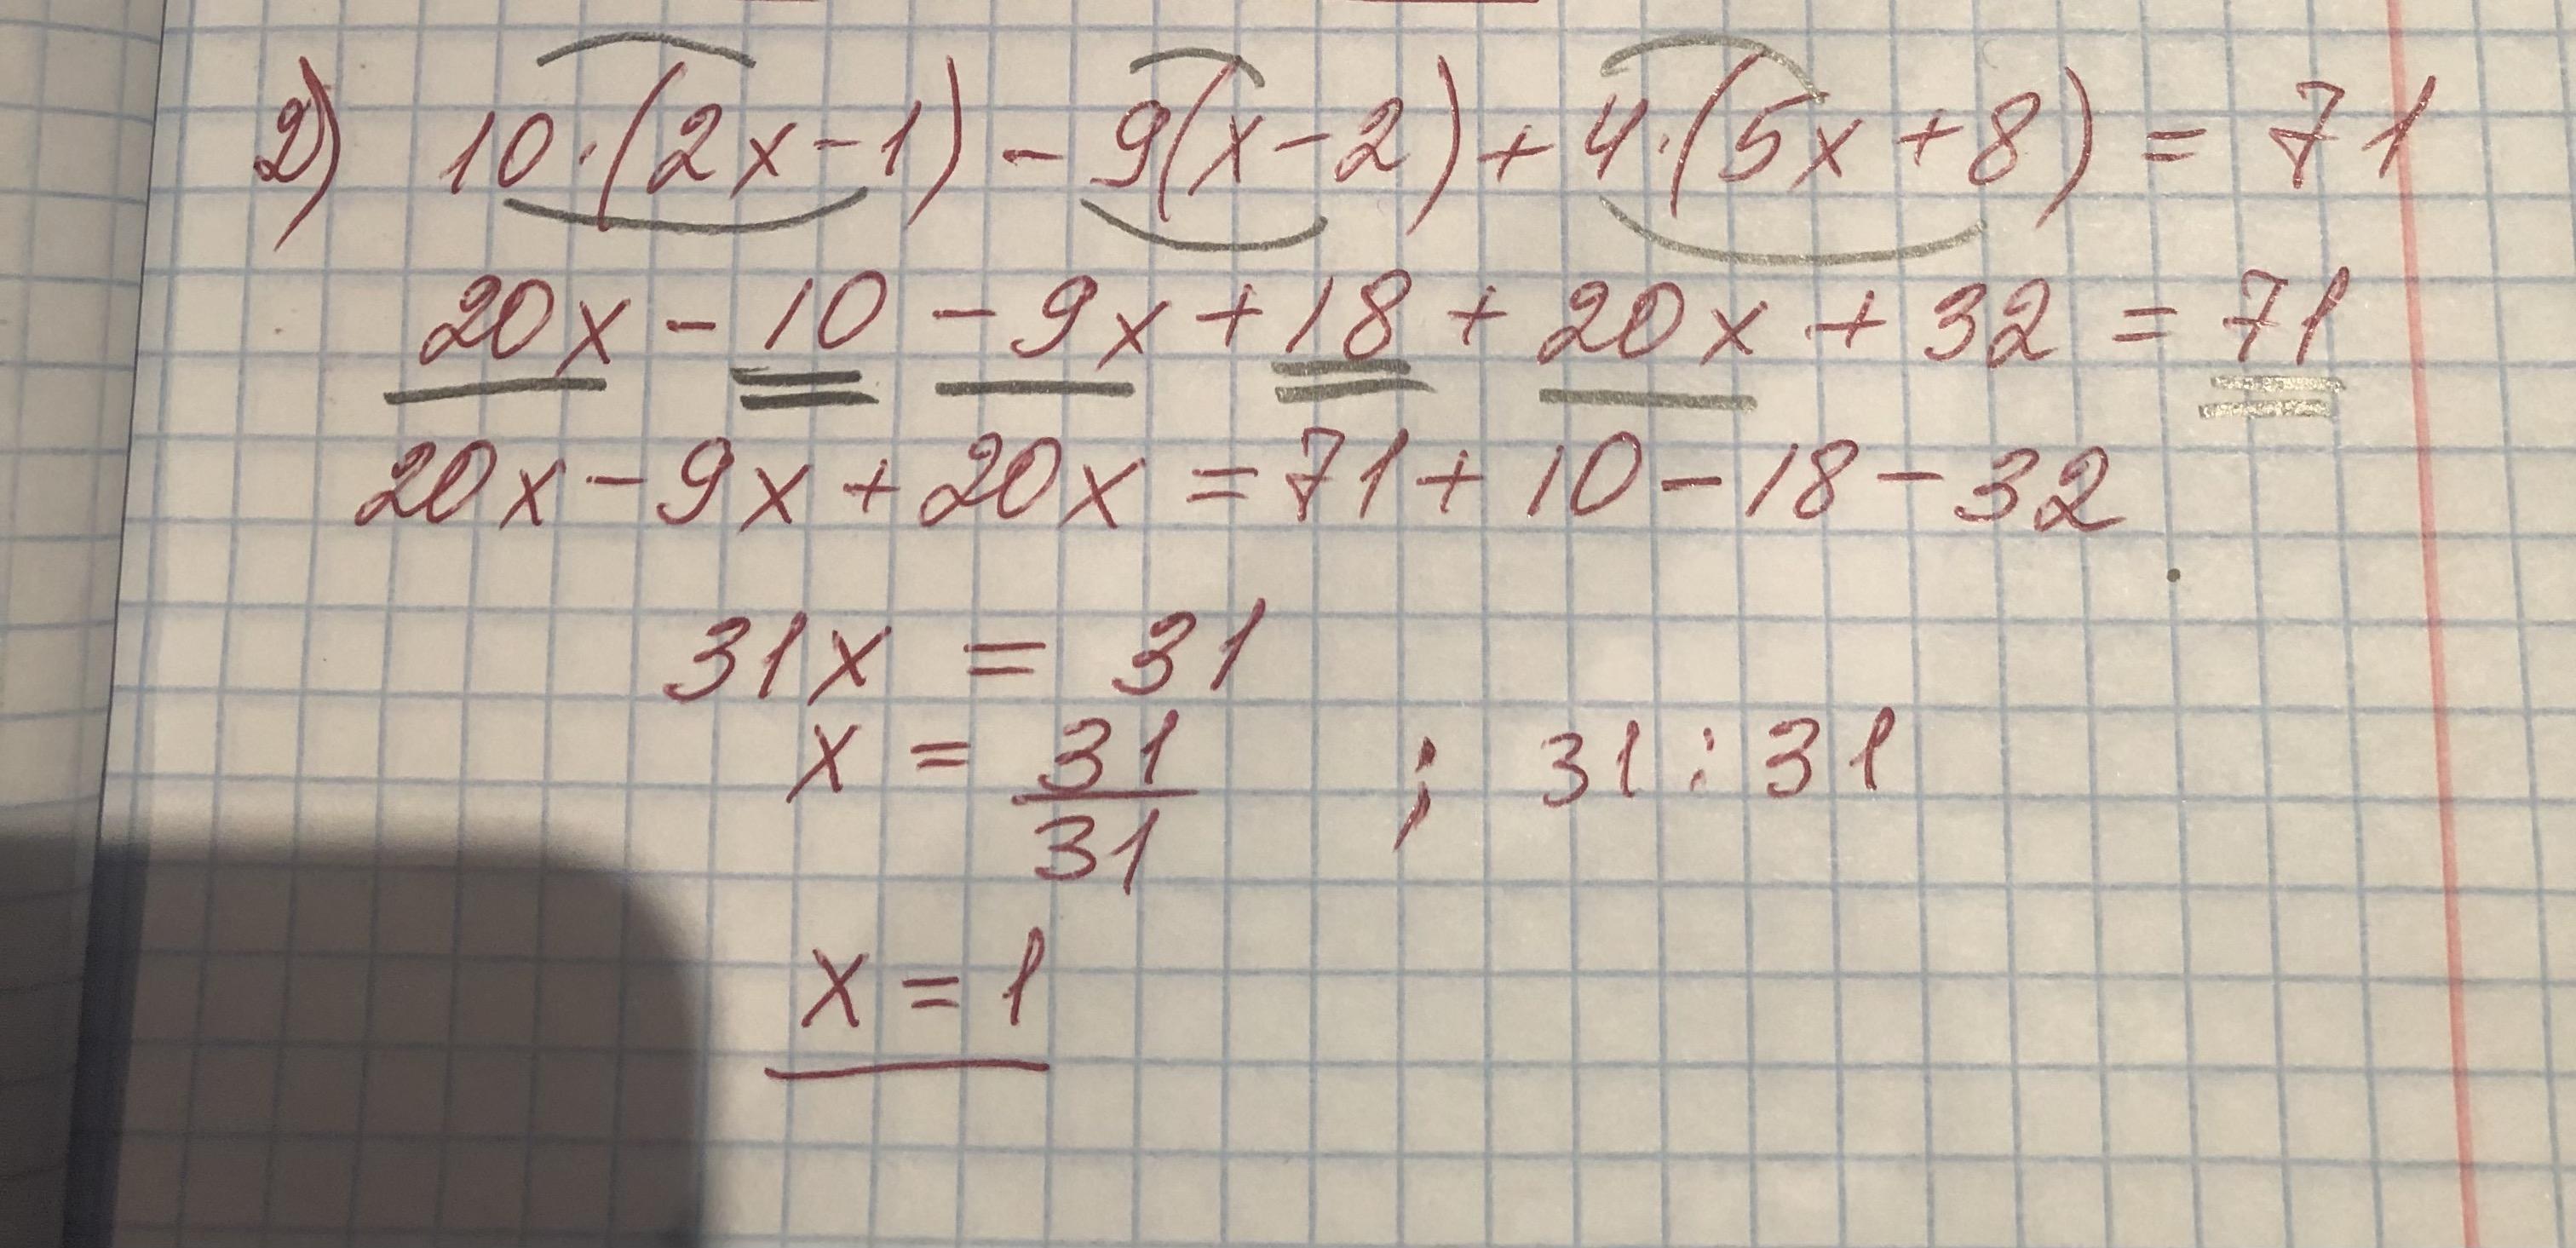 2) 10·(2x-1)-9(x-2)+4·(5x+8)=71
20x-10-9x+18+20x+32=71
20x-9x+20x=71+10-18-32
31x = 31
x = 31/31 ; 31:31
x=1